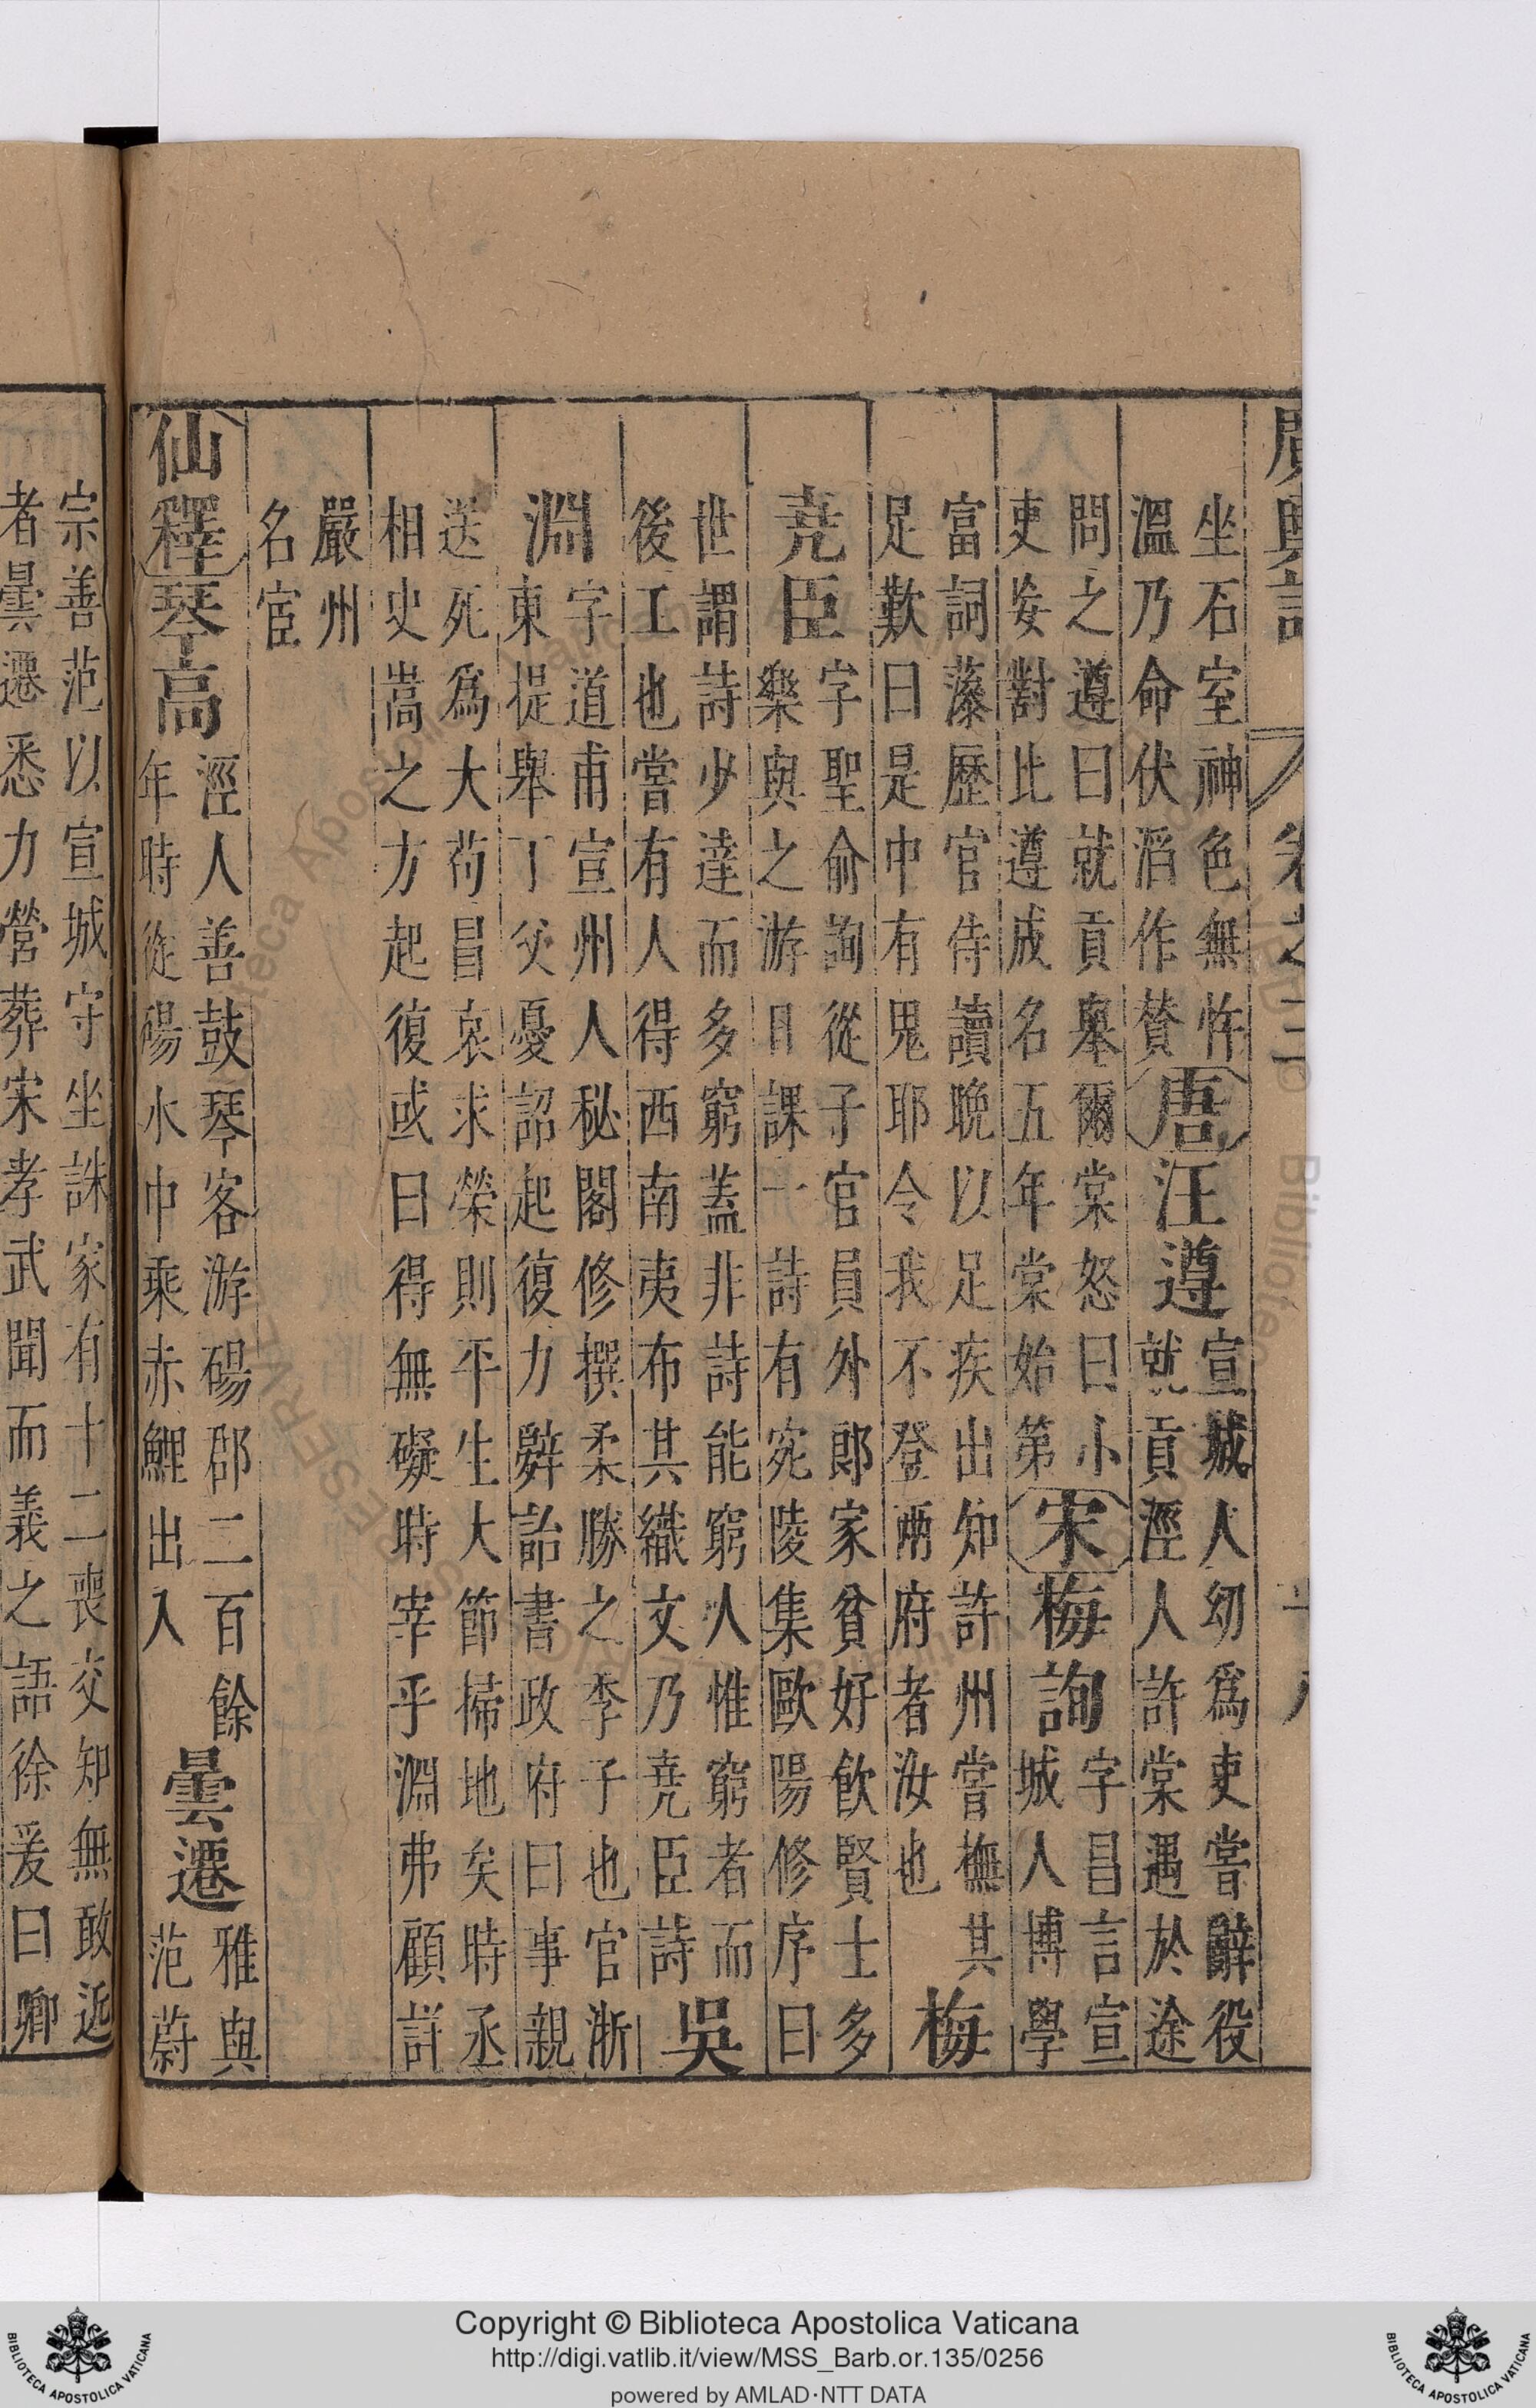 廣輿記 卷之三
坐石室神色無怍
溫乃命伏滔作贊
唐
汪遵
宣城人幼爲吏嘗辭役
就貢涇人許棠遇於途
問之遵曰就貢爾棠怒曰小
吏妄對比遵成名五年棠始第
宋
梅詢
字昌言宣
城人博學
富詞藻歷官侍讀晚以足疾出知許州嘗撫其
足歎曰是中有鬼耶令我不登兩府者汝也
梅
堯臣
字聖俞詢從子官員外郎家貧好飲賢士多
樂與之游日課一詩有宛陵集歐陽修序曰
世謂詩少達而多窮蓋非詩能窮人惟窮者而
後工也嘗有人得西南夷布其織文乃堯臣詩
吳
淵
字道甫宣州人秘閣修撰柔勝之季子也官浙
東提舉丁父憂詔起復力辭詒書政府曰事親
送死爲大苟昌哀求榮則平生大節掃地矣時丞
相史嵩之方起復或曰得無礙時宰乎淵弗顧詳
嚴州
名宦
仙釋
琴高
涇人善鼓琴客游碭郡二百餘
年時從碭水中乘赤鯉出入
曇遷
雅與
范蔚
宗善范以宣城守坐誅家有十二喪交知無敢近
者曇遷悉力營葬宋孝武聞而義之語徐爰曰卿
Copyright © Biblioteca Apostolica Vaticana
http://digi.vatlib.it/view/MSS_Barb.or.135/0256
powered by AMLAD·NTT DATA
BIBLIOTECA APOSTOLICA VATICANA
BIBLIOTECA APOSTOLICA VATICANA